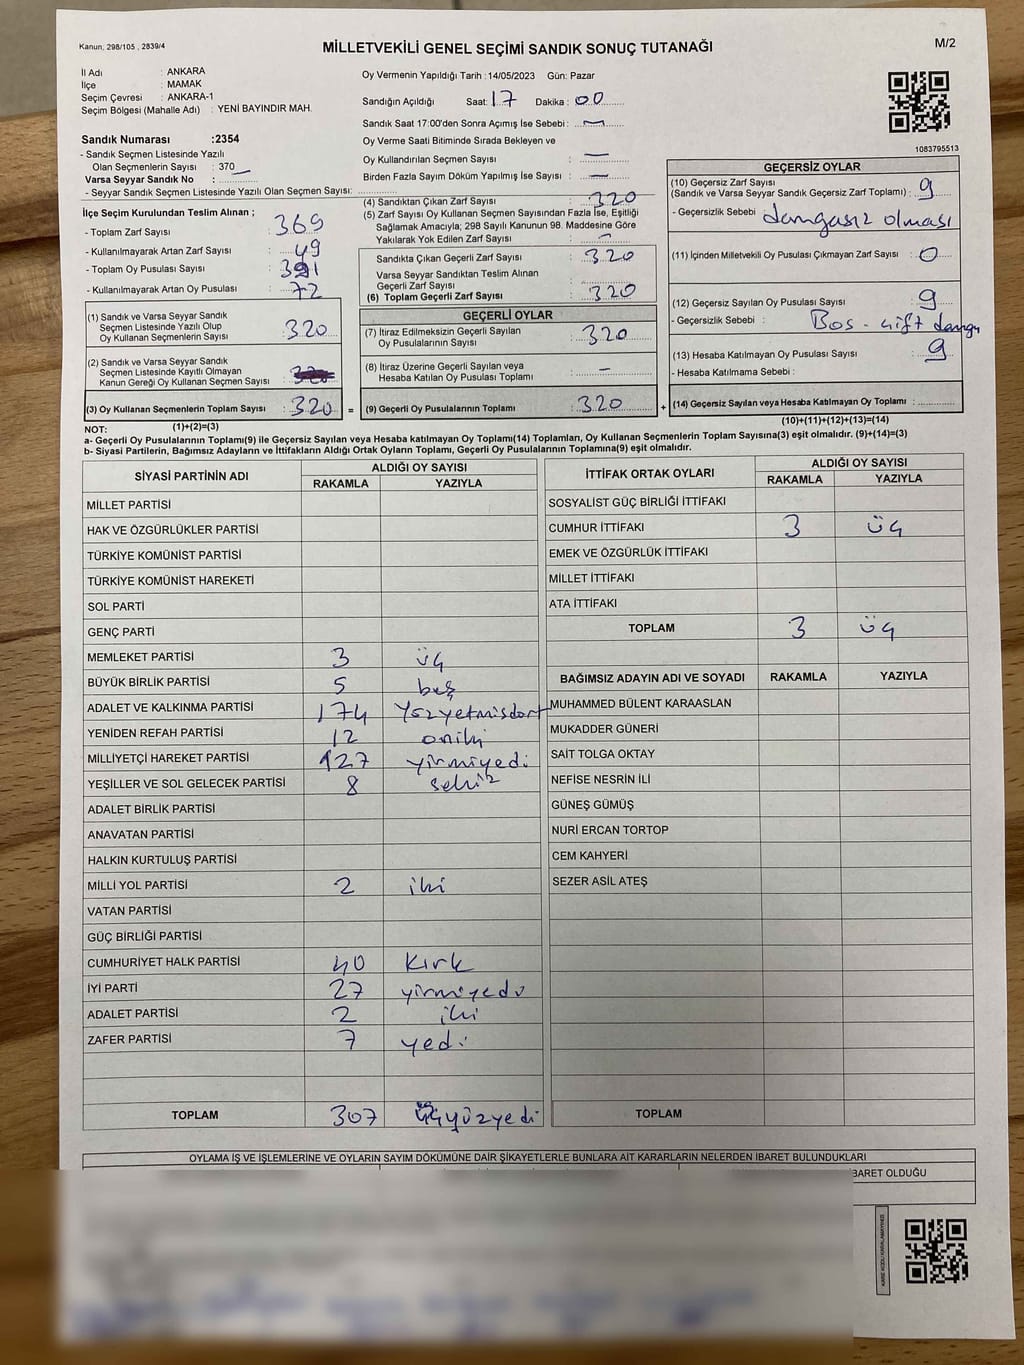 Kanun, 298/105 , 2839/4
MİLLETVEKİLİ GENEL SEÇİMİ SANDIK SONUÇ TUTANAĞI
M/2
İl Adı : ANKARA
İlçe : MAMAK
Seçim Çevresi : ANKARA-1
Seçim Bölgesi (Mahalle Adı) : YENİ BAYINDIR MAH.
Oy Vermenin Yapıldığı Tarih : 14/05/2023 Gün: Pazar
Sandığın Açıldığı Saat: 17 Dakika : 00
Sandık Saat 17:00'den Sonra Açımış İse Sebebi : —
Oy Verme Saati Bitiminde Sırada Bekleyen ve
Oy Kullandırılan Seçmen Sayısı : —
Birden Fazla Sayım Döküm Yapılmış İse Sayısı : —
1083795513
Sandık Numarası :2354
- Sandık Seçmen Listesinde Yazılı
Olan Seçmenlerin Sayısı : 370
Varsa Seyyar Sandık No :
- Seyyar Sandık Seçmen Listesinde Yazılı Olan Seçmen Sayısı:
İlçe Seçim Kurulundan Teslim Alınan ;
- Toplam Zarf Sayısı : 369
- Kullanılmayarak Artan Zarf Sayısı : 49
- Toplam Oy Pusulası Sayısı : 391
- Kullanılmayarak Artan Oy Pusulası : 72
(1) Sandık ve Varsa Seyyar Sandık
Seçmen Listesinde Yazılı Olup
Oy Kullanan Seçmenlerin Sayısı : 320
(2) Sandık ve Varsa Seyyar Sandık
Seçmen Listesinde Kayıtlı Olmayan
Kanun Gereği Oy Kullanan Seçmen Sayısı :
(3) Oy Kullanan Seçmenlerin Toplam Sayısı : 320 =
(1)+(2)=(3)
(4) Sandıktan Çıkan Zarf Sayısı : 320
(5) Zarf Sayısı Oy Kullanan Seçmen Sayısından Fazla İse, Eşitliği
Sağlamak Amacıyla; 298 Sayılı Kanunun 98. Maddesine Göre
Yakılarak Yok Edilen Zarf Sayısı : —
Sandıkta Çıkan Geçerli Zarf Sayısı : 320
Varsa Seyyar Sandıktan Teslim Alınan
Geçerli Zarf Sayısı :
(6) Toplam Geçerli Zarf Sayısı : 320
GEÇERLİ OYLAR
(7) İtiraz Edilmeksizin Geçerli Sayılan
Oy Pusulalarının Sayısı : 320
(8) İtiraz Üzerine Geçerli Sayılan veya
Hesaba Katılan Oy Pusulası Toplamı : —
(9) Geçerli Oy Pusulalarının Toplamı : 320 +
GEÇERSİZ OYLAR
(10) Geçersiz Zarf Sayısı
(Sandık ve Varsa Seyyar Sandık Geçersiz Zarf Toplamı) : 9
- Geçersizlik Sebebi : damgasız olması
(11) İçinden Milletvekili Oy Pusulası Çıkmayan Zarf Sayısı : 0
(12) Geçersiz Sayılan Oy Pusulası Sayısı : 9
- Geçersizlik Sebebi : Bos - çift damga
(13) Hesaba Katılmayan Oy Pusulası Sayısı : 9
- Hesaba Katılmama Sebebi :
(14) Geçersiz Sayılan veya Hesaba Katılmayan Oy Toplamı :
(10)+(11)+(12)+(13)=(14)
NOT:
a- Geçerli Oy Pusulalarının Toplamı(9) ile Geçersiz Sayılan veya Hesaba katılmayan Oy Toplamı(14) Toplamları, Oy Kullanan Seçmenlerin Toplam Sayısına(3) eşit olmalıdır. (9)+(14)=(3)
b- Siyasi Partilerin, Bağımsız Adayların ve İttifakların Aldığı Ortak Oyların Toplamı, Geçerli Oy Pusulalarının Toplamına(9) eşit olmalıdır.
SİYASİ PARTİNİN ADI ALDIĞI OY SAYISI
RAKAMLA YAZIYLA
MİLLET PARTİSİ
HAK VE ÖZGÜRLÜKLER PARTİSİ
TÜRKİYE KOMÜNİST PARTİSİ
TÜRKİYE KOMÜNİST HAREKETİ
SOL PARTİ
GENÇ PARTİ
MEMLEKET PARTİSİ 3 üç
BÜYÜK BİRLİK PARTİSİ 5 beş
ADALET VE KALKINMA PARTİSİ 174 Yüzyetmisdort
YENİDEN REFAH PARTİSİ 12 oniki
MİLLİYETÇİ HAREKET PARTİSİ 27 yirmiyedi
YEŞİLLER VE SOL GELECEK PARTİSİ 8 sekiz
ADALET BİRLİK PARTİSİ
ANAVATAN PARTİSİ
HALKIN KURTULUŞ PARTİSİ
MİLLİ YOL PARTİSİ 2 iki
VATAN PARTİSİ
GÜÇ BİRLİĞİ PARTİSİ
CUMHURİYET HALK PARTİSİ 40 Kırk
İYİ PARTİ 27 yirmiyedi
ADALET PARTİSİ 2 iki
ZAFER PARTİSİ 7 yedi
TOPLAM 307 üçyüzyedi
İTTİFAK ORTAK OYLARI ALDIĞI OY SAYISI
RAKAMLA YAZIYLA
SOSYALİST GÜÇ BİRLİĞİ İTTİFAKI
CUMHUR İTTİFAKI 3 üç
EMEK VE ÖZGÜRLÜK İTTİFAKI
MİLLET İTTİFAKI
ATA İTTİFAKI
TOPLAM 3 üç
BAĞIMSIZ ADAYIN ADI VE SOYADI RAKAMLA YAZIYLA
MUHAMMED BÜLENT KARAASLAN
MUKADDER GÜNERİ
SAİT TOLGA OKTAY
NEFİSE NESRİN İLİ
GÜNEŞ GÜMÜŞ
NURİ ERCAN TORTOP
CEM KAHYERİ
SEZER ASİL ATEŞ
TOPLAM
OYLAMA İŞ VE İŞLEMLERİNE VE OYLARIN SAYIM DÖKÜMÜNE DAİR ŞİKAYETLERLE BUNLARA AİT KARARLARIN NELERDEN İBARET BULUNDUKLARI
İBARET OLDUĞU